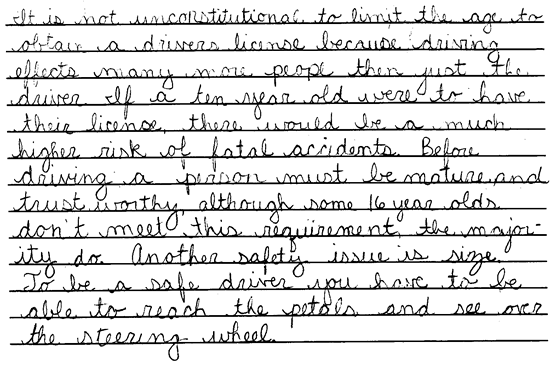 It is not unconstitutional to limit the age to
obtain a drivers license because driving
effects many more peope then just the
driver. If a ten year old were to have
their license, there would be a much
higher risk of fatal accidents. Before
driving a person must be mature and
trust worthy, although some 16 year olds
don't meet this requirement, the major-
ity do. Another safety issue is size.
To be a safe driver you have to be
able to reach the petals and see over
the steering wheel.